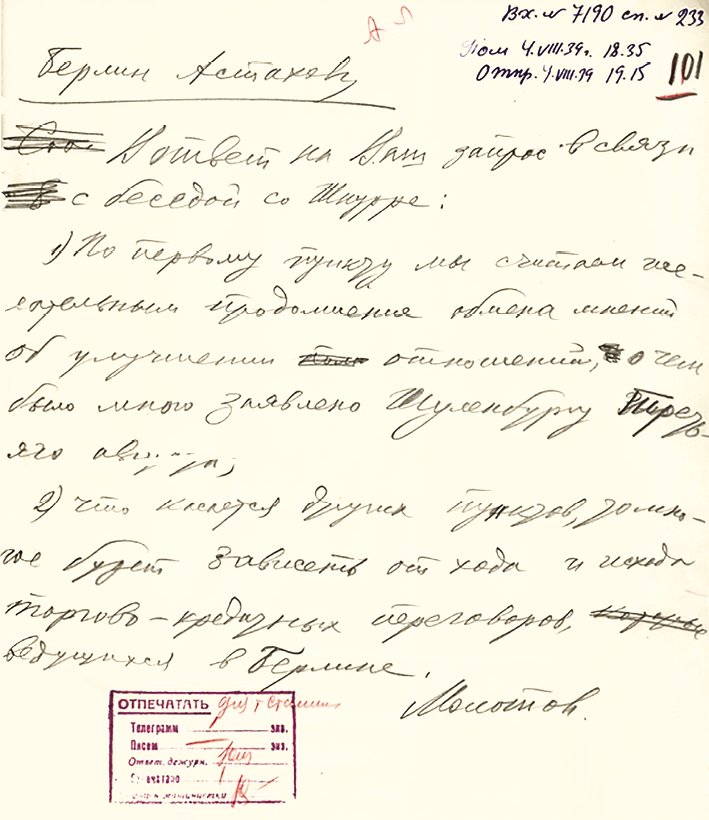 Вх. № 7190 сп. № 233
Пом 4.VIII.39г. 18.35
Отпр. 4.VIII.39 19.15
101
Берлин Астахову
В ответ на Ваш запрос в связи
с беседой со Шнурре:
1) По первому пункту мы считаем же-
лательным продолжение обмена мнений
об улучшении отношений, о чем
было мною заявлено Шуленбургу Треть-
яго августа;
2) что касается других пунктов, то мно-
гое будет зависеть от хода и исхода
торгово-кредитных переговоров,
ведущихся в Берлине.
Молотов.
ОТПЕЧАТАТЬ для т Сталина
Телеграмм 1 экз.
Писем экз.
Ответ. дежурн.